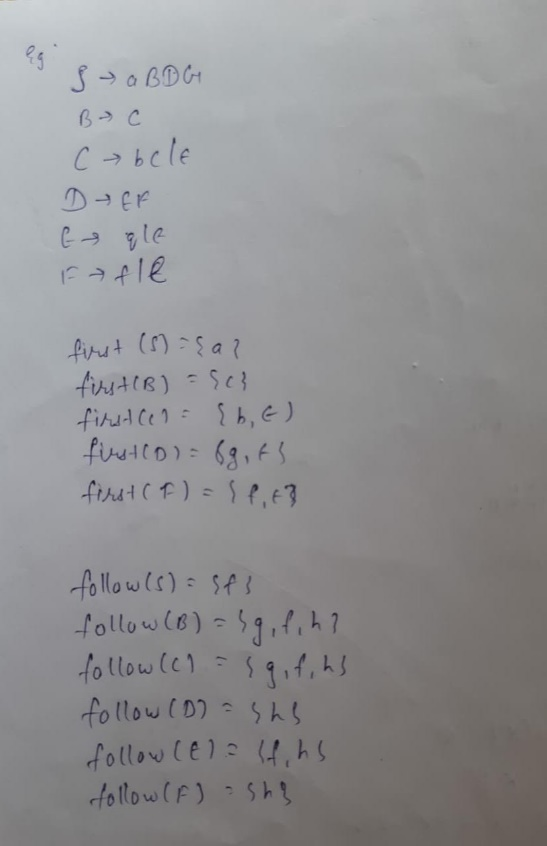 Eg
S → aBDG
B → C
C → bC/ε
D → EF
E → g/ε
F → f/ε
first (S) = {a}
first(B) = {c}
first(C) = {b, ε}
first(D) = {g, ε}
first(F) = {f, ε}
follow(S) = {f}
follow(B) = {g, f, h}
follow(C) = {g, f, h}
follow(D) = {h}
follow(E) = {f, h}
follow(F) = {h}